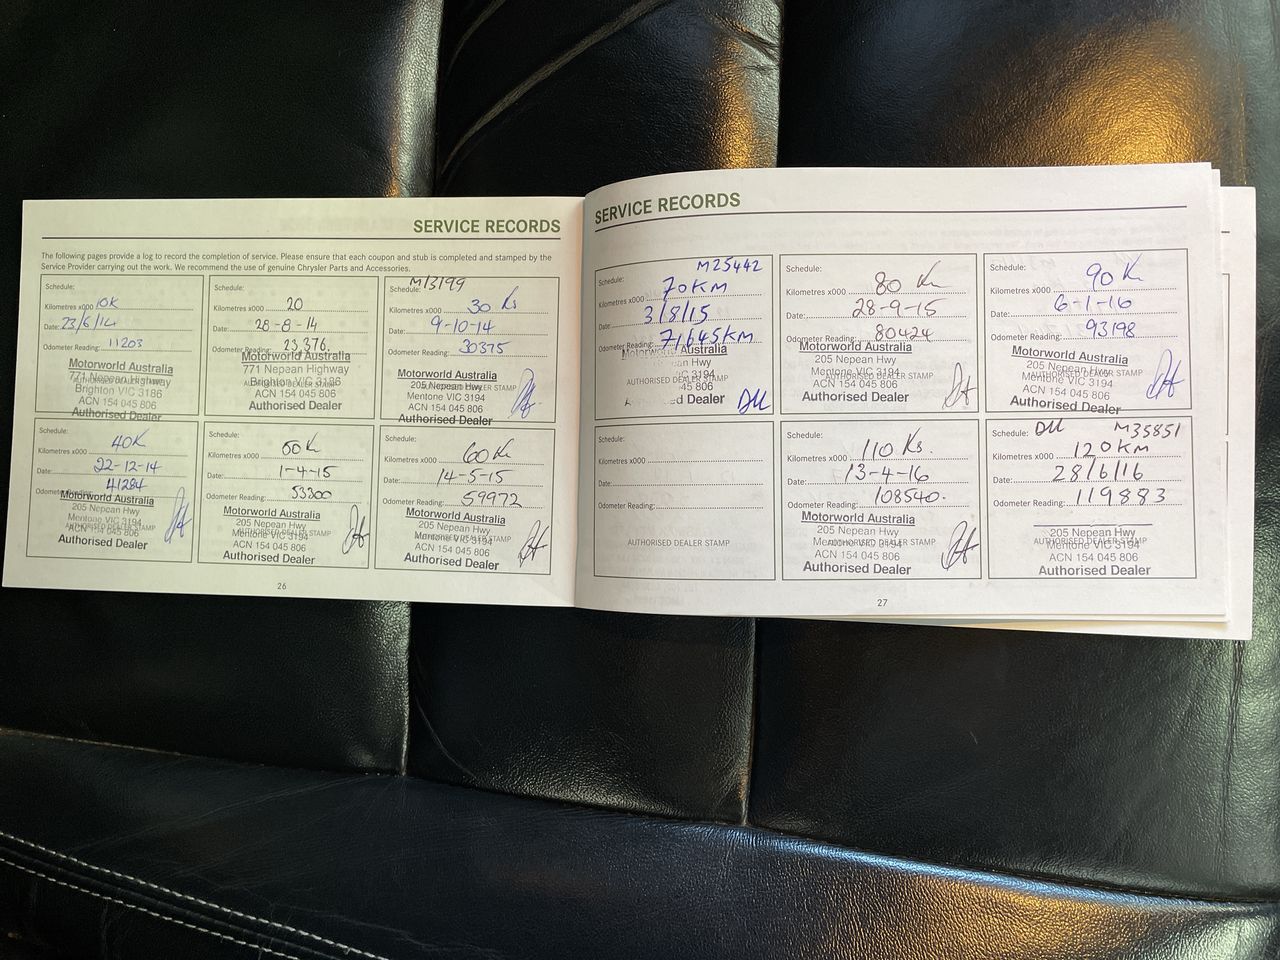 SERVICE RECORDS
The following pages provide a log to record the completion of service. Please ensure that each coupon and stub is completed and stamped by the
Service Provider carrying out the work. We recommend the use of genuine Chrysler Parts and Accessories.
Schedule:
Kilometres x000 10K
Date: 23/6/14
Odometer Reading: 11203
Motorworld Australia
771 Nepean Highway
AUTHORISED DEALER STAMP
Brighton VIC 3186
ACN 154 045 806
Authorised Dealer
Schedule:
Kilometres x000 20
Date: 28-8-14
Odometer Reading: 23,376.
Motorworld Australia
771 Nepean Highway
AUTHORISED DEALER STAMP
Brighton VIC 3186
ACN 154 045 806
Authorised Dealer
M13199
Schedule:
Kilometres x000 30 Ks
Date: 9-10-14
Odometer Reading: 30375
Motorworld Australia
205 Nepean Hwy
AUTHORISED DEALER STAMP
Mentone VIC 3194
ACN 154 045 806
Authorised Dealer
Schedule:
Kilometres x000 40K
Date: 22-12-14
Odometer Reading: 41284
Motorworld Australia
205 Nepean Hwy
Mentone VIC 3194
AUTHORISED DEALER STAMP
ACN 154 045 806
Authorised Dealer
Schedule:
Kilometres x000 50K
Date: 1-4-15
Odometer Reading: 53300
Motorworld Australia
205 Nepean Hwy
AUTHORISED DEALER STAMP
Mentone VIC 3194
ACN 154 045 806
Authorised Dealer
Schedule:
Kilometres x000 60K
Date: 14-5-15
Odometer Reading: 59972
Motorworld Australia
205 Nepean Hwy
AUTHORISED DEALER STAMP
Mentone VIC 3194
ACN 154 045 806
Authorised Dealer
26
SERVICE RECORDS
Schedule: M25442
Kilometres x000 70KM
Date: 3/8/15
Odometer Reading: 71,645KM
Motorworld Australia
Hwy
AUTHORISED DEALER STAMP
VIC 3194
45 806
Dealer
Schedule:
Kilometres x000 80 K
Date: 28-9-15
Odometer Reading: 80424
Motorworld Australia
205 Nepean Hwy
AUTHORISED DEALER STAMP
Mentone VIC 3194
ACN 154 045 806
Authorised Dealer
Schedule:
Kilometres x000 90 K
Date: 6-1-16
Odometer Reading: 93198
Motorworld Australia
205 Nepean Hwy
AUTHORISED DEALER STAMP
Mentone VIC 3194
ACN 154 045 806
Authorised Dealer
Schedule:
Kilometres x000
Date:
Odometer Reading:
AUTHORISED DEALER STAMP
Schedule:
Kilometres x000 110 Ks.
Date: 13-4-16
Odometer Reading: 108540.
Motorworld Australia
205 Nepean Hwy
AUTHORISED DEALER STAMP
Mentone VIC 3194
ACN 154 045 806
Authorised Dealer
Schedule: M35851
Kilometres x000 120KM
Date: 28/6/16
Odometer Reading: 119883
205 Nepean Hwy
AUTHORISED DEALER STAMP
Mentone VIC 3194
ACN 154 045 806
Authorised Dealer
27